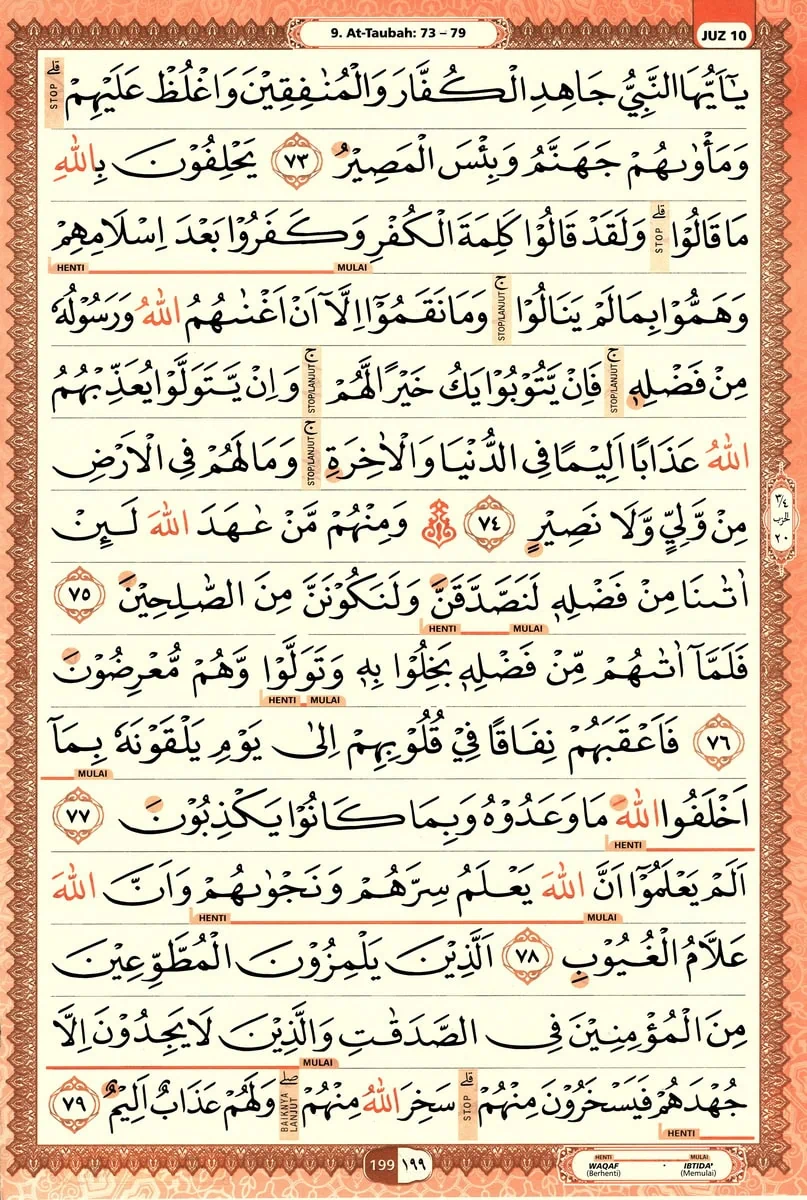 9. At-Taubah: 73 – 79
JUZ 10
يٰٓاَيُّهَا النَّبِيُّ جَاهِدِ الْكُفَّارَ وَالْمُنٰفِقِيْنَ وَاغْلُظْ عَلَيْهِمْ ۗ STOP
وَمَأْوٰىهُمْ جَهَنَّمُ وَبِئْسَ الْمَصِيْرُ ٧٣ يَحْلِفُوْنَ بِاللّٰهِ
مَا قَالُوْا ۗ STOP وَلَقَدْ قَالُوْا كَلِمَةَ الْكُفْرِ وَكَفَرُوْا بَعْدَ اِسْلَامِهِمْ
MULAI HENTI
وَهَمُّوْا بِمَا لَمْ يَنَالُوْا ۚ STOP/LANJUT وَمَا نَقَمُوْٓا اِلَّآ اَنْ اَغْنٰىهُمُ اللّٰهُ وَرَسُوْلُهٗ
مِنْ فَضْلِهٖ ۚ STOP/LANJUT فَاِنْ يَّتُوْبُوْا يَكُ خَيْرًا لَّهُمْ ۚ STOP/LANJUT وَاِنْ يَّتَوَلَّوْا يُعَذِّبْهُمُ
اللّٰهُ عَذَابًا اَلِيْمًا فِى الدُّنْيَا وَالْاٰخِرَةِ ۚ STOP/LANJUT وَمَا لَهُمْ فِى الْاَرْضِ
مِنْ وَّلِيٍّ وَّلَا نَصِيْرٍ ٧٤ ۞ وَمِنْهُمْ مَّنْ عٰهَدَ اللّٰهَ لَىِٕنْ
٣/٤ الحزب ٢٠
اٰتٰىنَا مِنْ فَضْلِهٖ لَنَصَّدَّقَنَّ وَلَنَكُوْنَنَّ مِنَ الصّٰلِحِيْنَ ٧٥
MULAI HENTI
فَلَمَّآ اٰتٰىهُمْ مِّنْ فَضْلِهٖ بَخِلُوْا بِهٖ وَتَوَلَّوْا وَّهُمْ مُّعْرِضُوْنَ
MULAI HENTI
٧٦ فَاَعْقَبَهُمْ نِفَاقًا فِيْ قُلُوْبِهِمْ اِلٰى يَوْمِ يَلْقَوْنَهٗ بِمَآ
MULAI
اَخْلَفُوا اللّٰهَ مَا وَعَدُوْهُ وَبِمَا كَانُوْا يَكْذِبُوْنَ ٧٧
HENTI
اَلَمْ يَعْلَمُوْٓا اَنَّ اللّٰهَ يَعْلَمُ سِرَّهُمْ وَنَجْوٰىهُمْ وَاَنَّ اللّٰهَ
MULAI HENTI
عَلَّامُ الْغُيُوْبِ ٧٨ اَلَّذِيْنَ يَلْمِزُوْنَ الْمُطَّوِّعِيْنَ
مِنَ الْمُؤْمِنِيْنَ فِى الصَّدَقٰتِ وَالَّذِيْنَ لَا يَجِدُوْنَ اِلَّا
MULAI
جُهْدَهُمْ فَيَسْخَرُوْنَ مِنْهُمْ ۗ STOP سَخِرَ اللّٰهُ مِنْهُمْ ۖ BAIKNYA LANJUT وَلَهُمْ عَذَابٌ اَلِيْمٌ ٧٩
HENTI
199 ١٩٩
HENTI MULAI
WAQAF • IBTIDA'
(Berhenti) (Memulai)